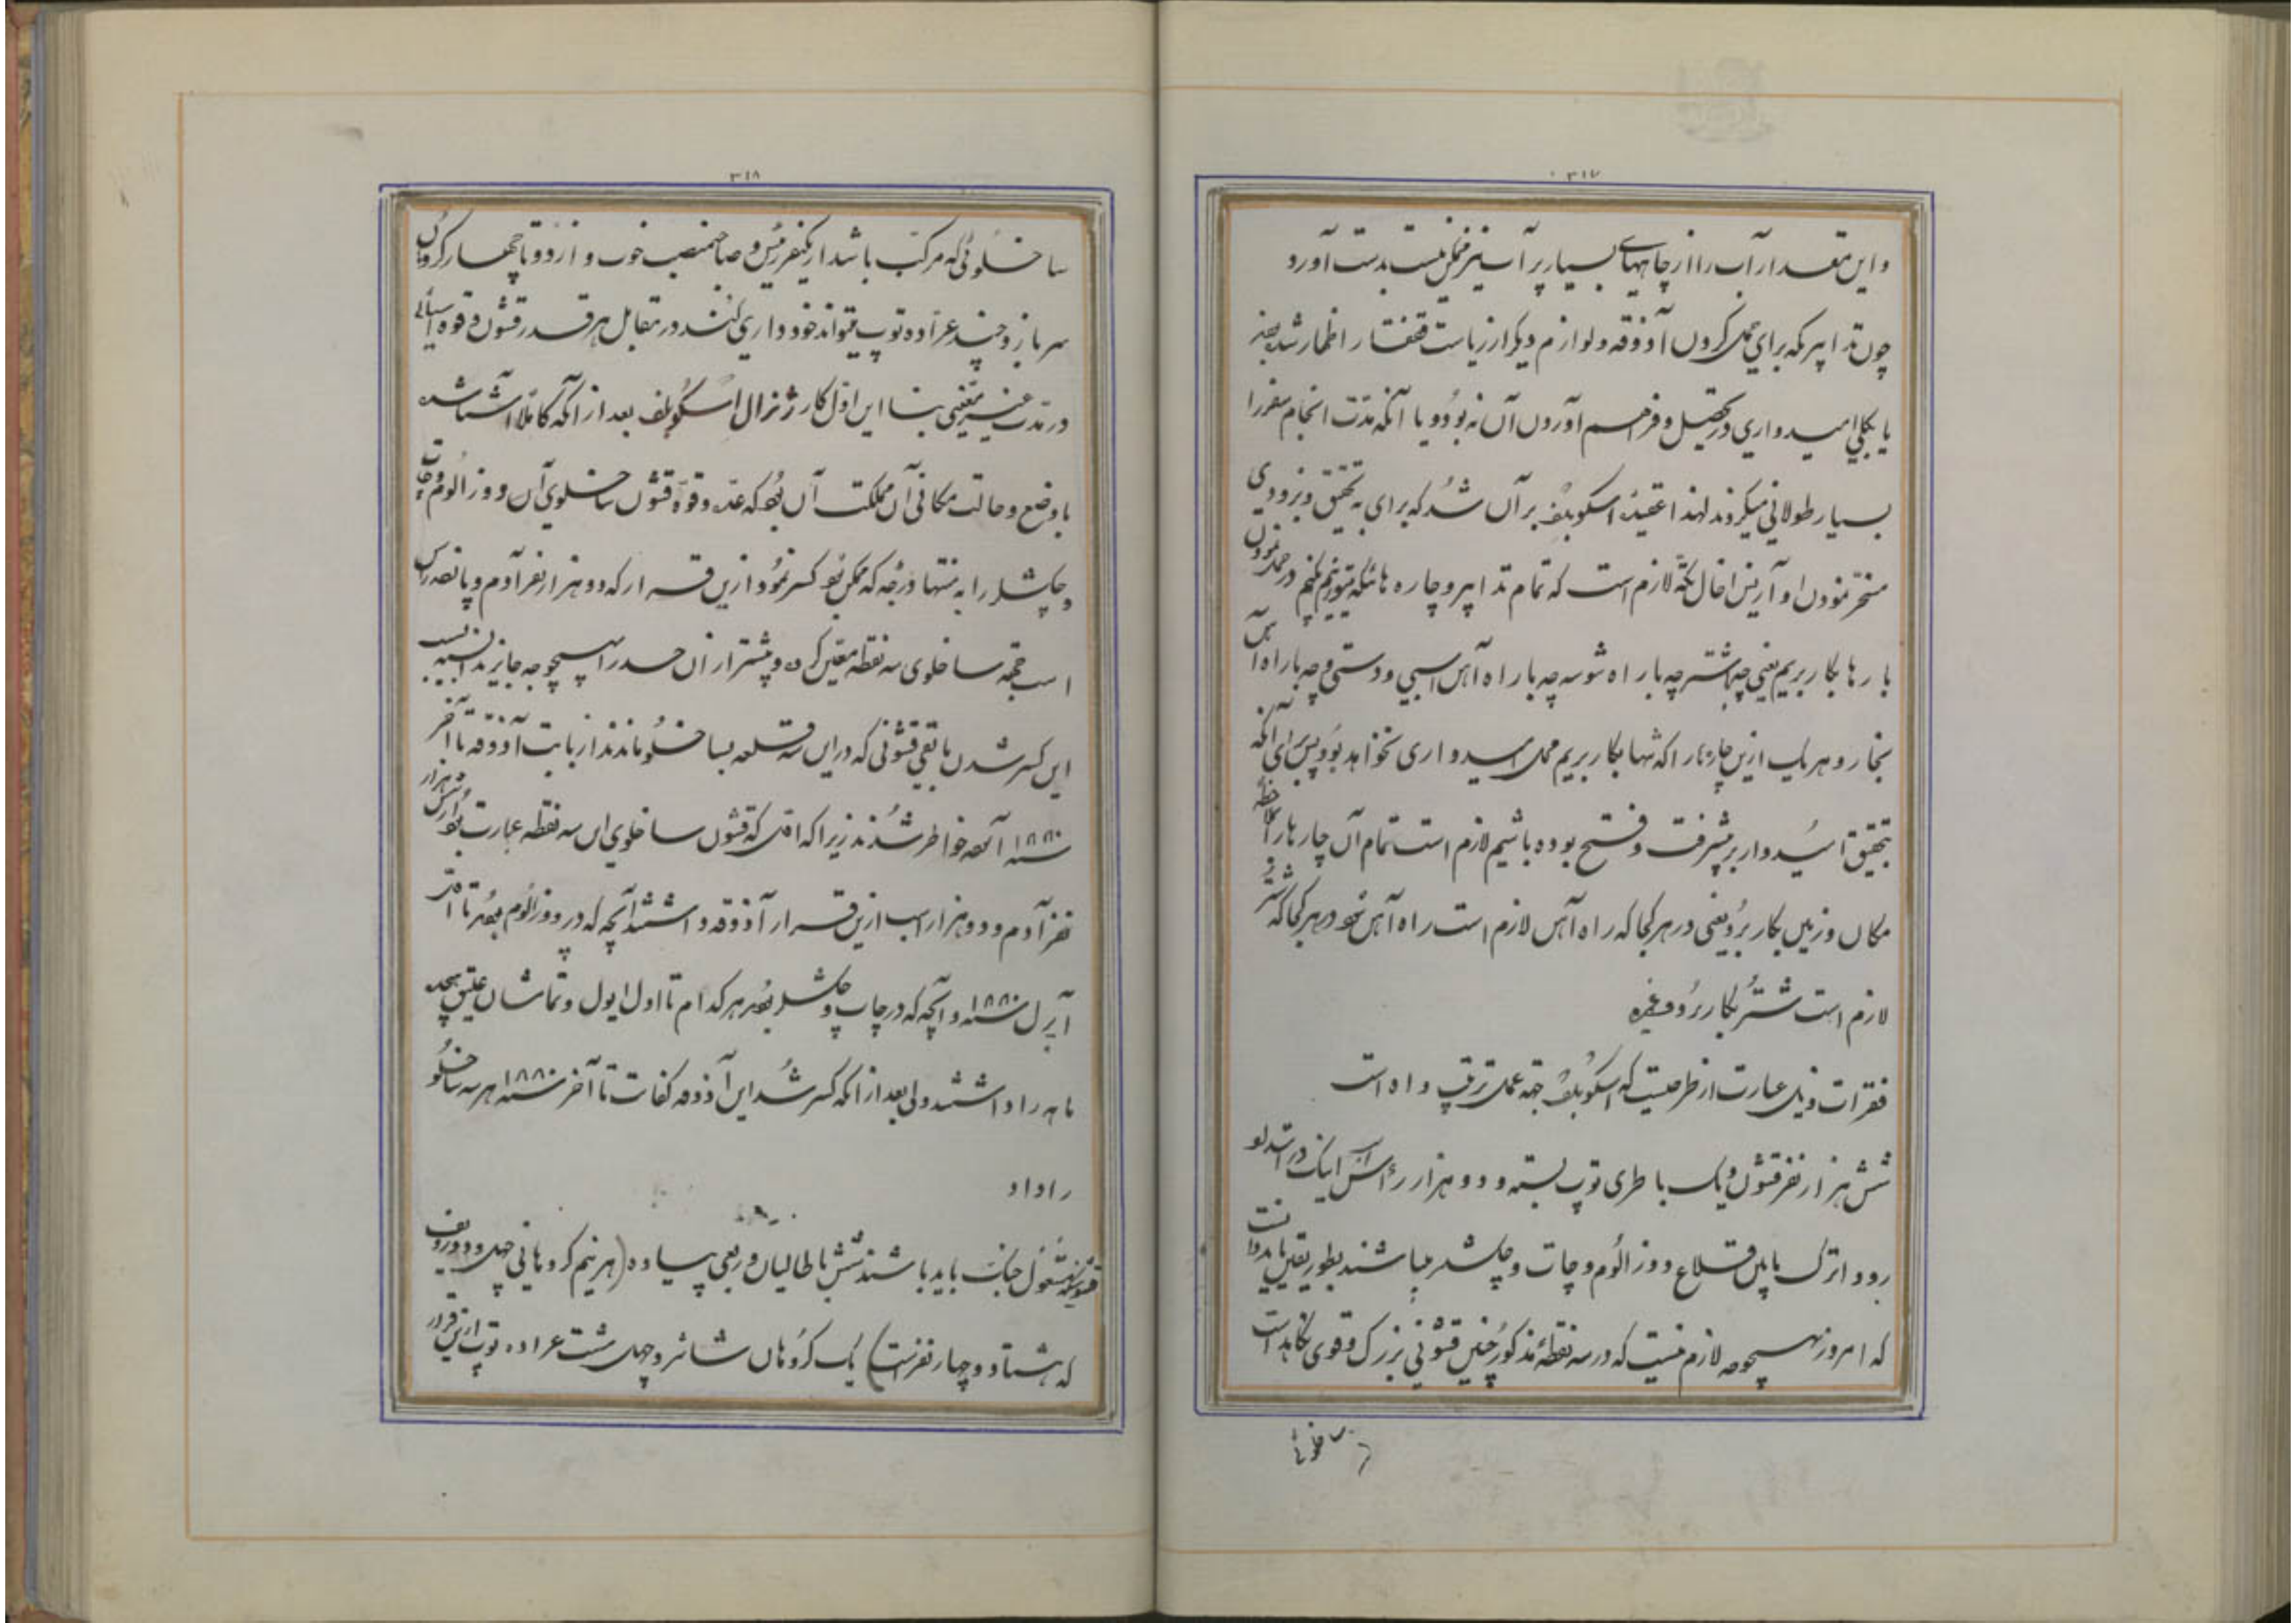 ۳۱۷
و این مقدار آب را از چاههای بسیار پر آب نیز ممکن نیست بدست آورد
چون تدابیر که برای حمل کردن آذوقه و لوازم دیگر از ریاست قفقاز اظهار شد بجز
یا بکلی امیدواری در تحصیل و فراهم آوردن آن نه بود و یا آنکه مدت انجام سفر را
بسیار طولانی میکردند لهذا عقیده اسکوبلف بر آن شد که برای به تحقیق و بزودی
مسخر نمودن او آرین اخال تکه لازم است که تمام تدابیر و چاره هائیکه میتوانیم بکنیم در حمل نمودن
بارها بکار بریم یعنی چه باشتر چه بار راه شوسه چه بار راه آهن اسبی و دستی و چه بار راه آهن
بخار و هر یک ازین چاره ها را که تنها بکار بریم محل امیدواری نخواهد بود پس برای آنکه
بتحقیق امیدوار بر پیشرفت و فتح بوده باشیم لازم است تمام آن چارها را بملاحظه
مکان و زمین بکار برد یعنی در هر کجا که راه آهن لازم است راه آهن و در هر کجا که شتر
لازم است شتر بکار برد و غیره
فقرات ذیل عبارت از طرحیست که اسکوبلف جهة عمل ترتیب داده است
شش هزار نفر قشون و یک باطری توپ بسته و دو هزار رأس اسب اینک در امتداد
رود اترک پایین قلاع دوزالوم و چات و چکشلر میباشند بطور یقین باید دانست
که امروز بهیچوجه لازم نیست که در سه نقطه مذکور چنین قشونی بزرگ و قوی نگاهداشت
ساخلوئی
۳۱۸
ساخلوئی که مرکب باشد از یکنفر رئیس و صاحبمنصب خوب و از دو تا چهار کروهان
سرباز و چند عراده توپ میتواند خودداری کند در مقابل هر قدر قشون و قوه آسیائی
در مدت غیر معینی بنا این اول کار ژنرال اسکوبلف بعد از آنکه کاملا آشنا شد
با وضع و حالت مکانی آن مملکت آن بود که عده و قوه قشون ساخلوی آن دوزالوم و چات
و چکشلر را به منتها درجه که ممکن بود کسر نمود ازین قرار که دو هزار نفر آدم و پانصد راس
اسب جهة ساخلوی سه نقطه معین کرده و بیشتر از آن حد را بهیچوجه جایز ندانسته بسبب
این کسر شدن باقی قشونی که در این سه قلعه بساخلو ماندند از بابت آذوقه تا آخر
سنه ۱۸۸۰ آسوده خاطر شدند زیرا که اول که قشون ساخلوی این سه نقطه عبارت بود از شش هزار
نفر آدم و دو هزار اسب ازین قرار آذوقه داشتند آنچه که در دوزالوم بود تا اول
آپرل سنه ۱۸۸۰ و آنچه که در چات و چکشلر بود هر کدام تا اول ایول و تماشان علیق پنج
ماهه را داشتند ولی بعد از آنکه کسر شد این آذوقه کفات تا آخر سنه ۱۸۸۰ هر سه ساخلو
را داد
قشونیکه مشغول جنگ باید باشند شش باطالیان و ربعی پیاده (هر نیم کروهانی چهل و دو ردیف
که هشتاد و چهار نفرست) یک کروهان شانر و چهل هشت عراده توپ ازین قرار